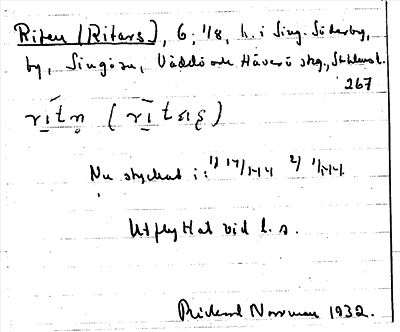 Riten (Ritars), 6: 1/8, h. i Sing. Söderby,
by, Singö sn, Väddö och Häverö skg, Sthlms l.
267
rítn̥ (rítas)
Nu styckat i: 1) 17/144 2) 1/144.
Utflyttat vid l. s.
Rickard Norrman 1932.